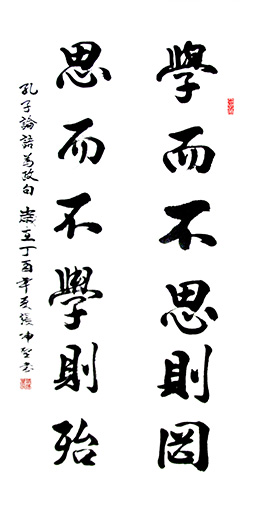 學而不思則罔
思而不學則殆
孔子論語為政句 歲在丁酉年夏張沖堅書